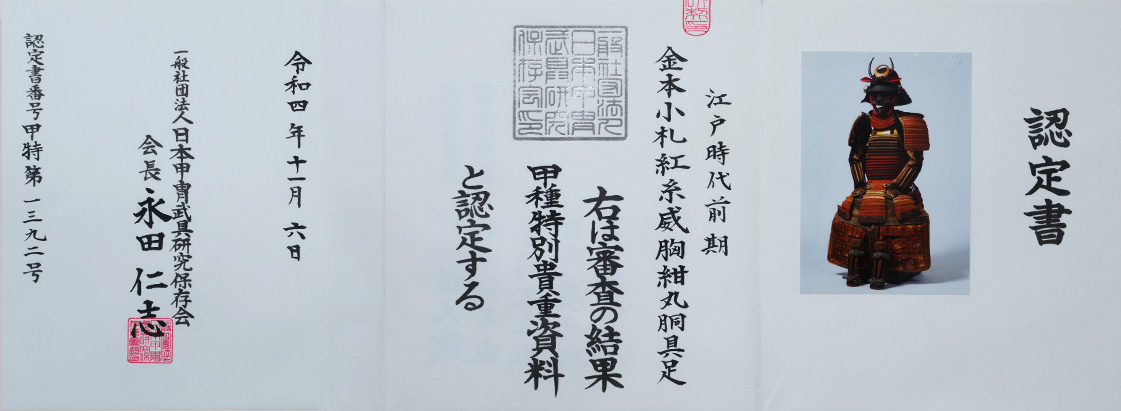 認定書
江戸時代前期
金本小札紅糸威胸紺丸胴具足
右は審査の結果
甲種特別貴重資料
と認定する
令和四年十一月六日
一般社団法人日本甲冑武具研究保存会
会長永田仁志
認定書番号甲特第一三九二号